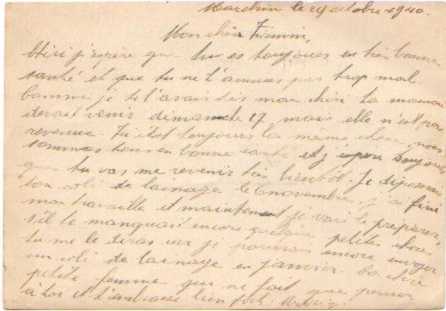 Marchin le 29 octobre 1940.
Mon chéri Firmin,
j'espère que tu es toujours en très bonne
santé et que tu ne t'ennuies pas trop mal.
Comme je te l'avais dis mon chéri ta maman
devait venir dimanche 27 mais elle n'est pas
revenue. toujours la même chose, nous
sommes tous en bonne santé et j'espère toujours
que tu vas me revenir bien bientôt. Je
ton colis de lainage le 6 novembre, j'ai fini
mon travaille et maintenant je vais le préparer,
s'il te manquait encore quelque petite chose
tu me le diras car je pourrais encore envoyer
un colis de lainage en janvier. Ta
petite femme qui ne fait que penser
à toi et t'embrasse bien fort.